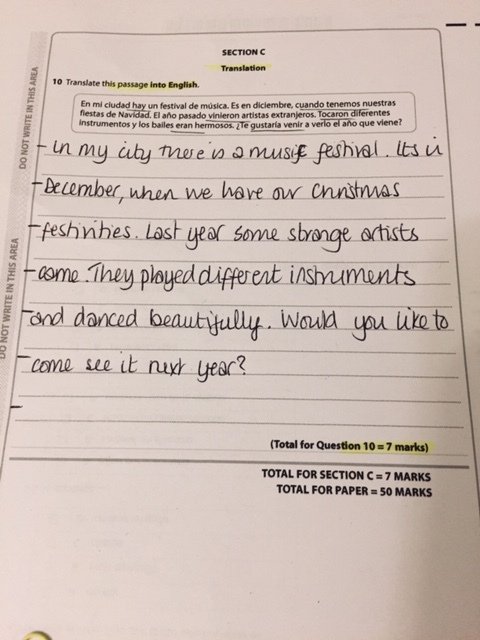 SECTION C
Translation
10 Translate this passage into English.
En mi ciudad hay un festival de música. Es en diciembre, cuando tenemos nuestras
fiestas de Navidad. El año pasado vinieron artistas extranjeros. Tocaron diferentes
instrumentos y los bailes eran hermosos. ¿Te gustaría venir a verlo el año que viene?
In my city there is a music festival. Its in
December, when we have our Christmas
festivities. Last year some strange artists
came. They played different instruments
and danced beautifully. Would you like to
come see it next year?
(Total for Question 10 = 7 marks)
TOTAL FOR SECTION C = 7 MARKS
TOTAL FOR PAPER = 50 MARKS
DO NOT WRITE IN THIS AREA
DO NOT WRITE IN THIS AREA